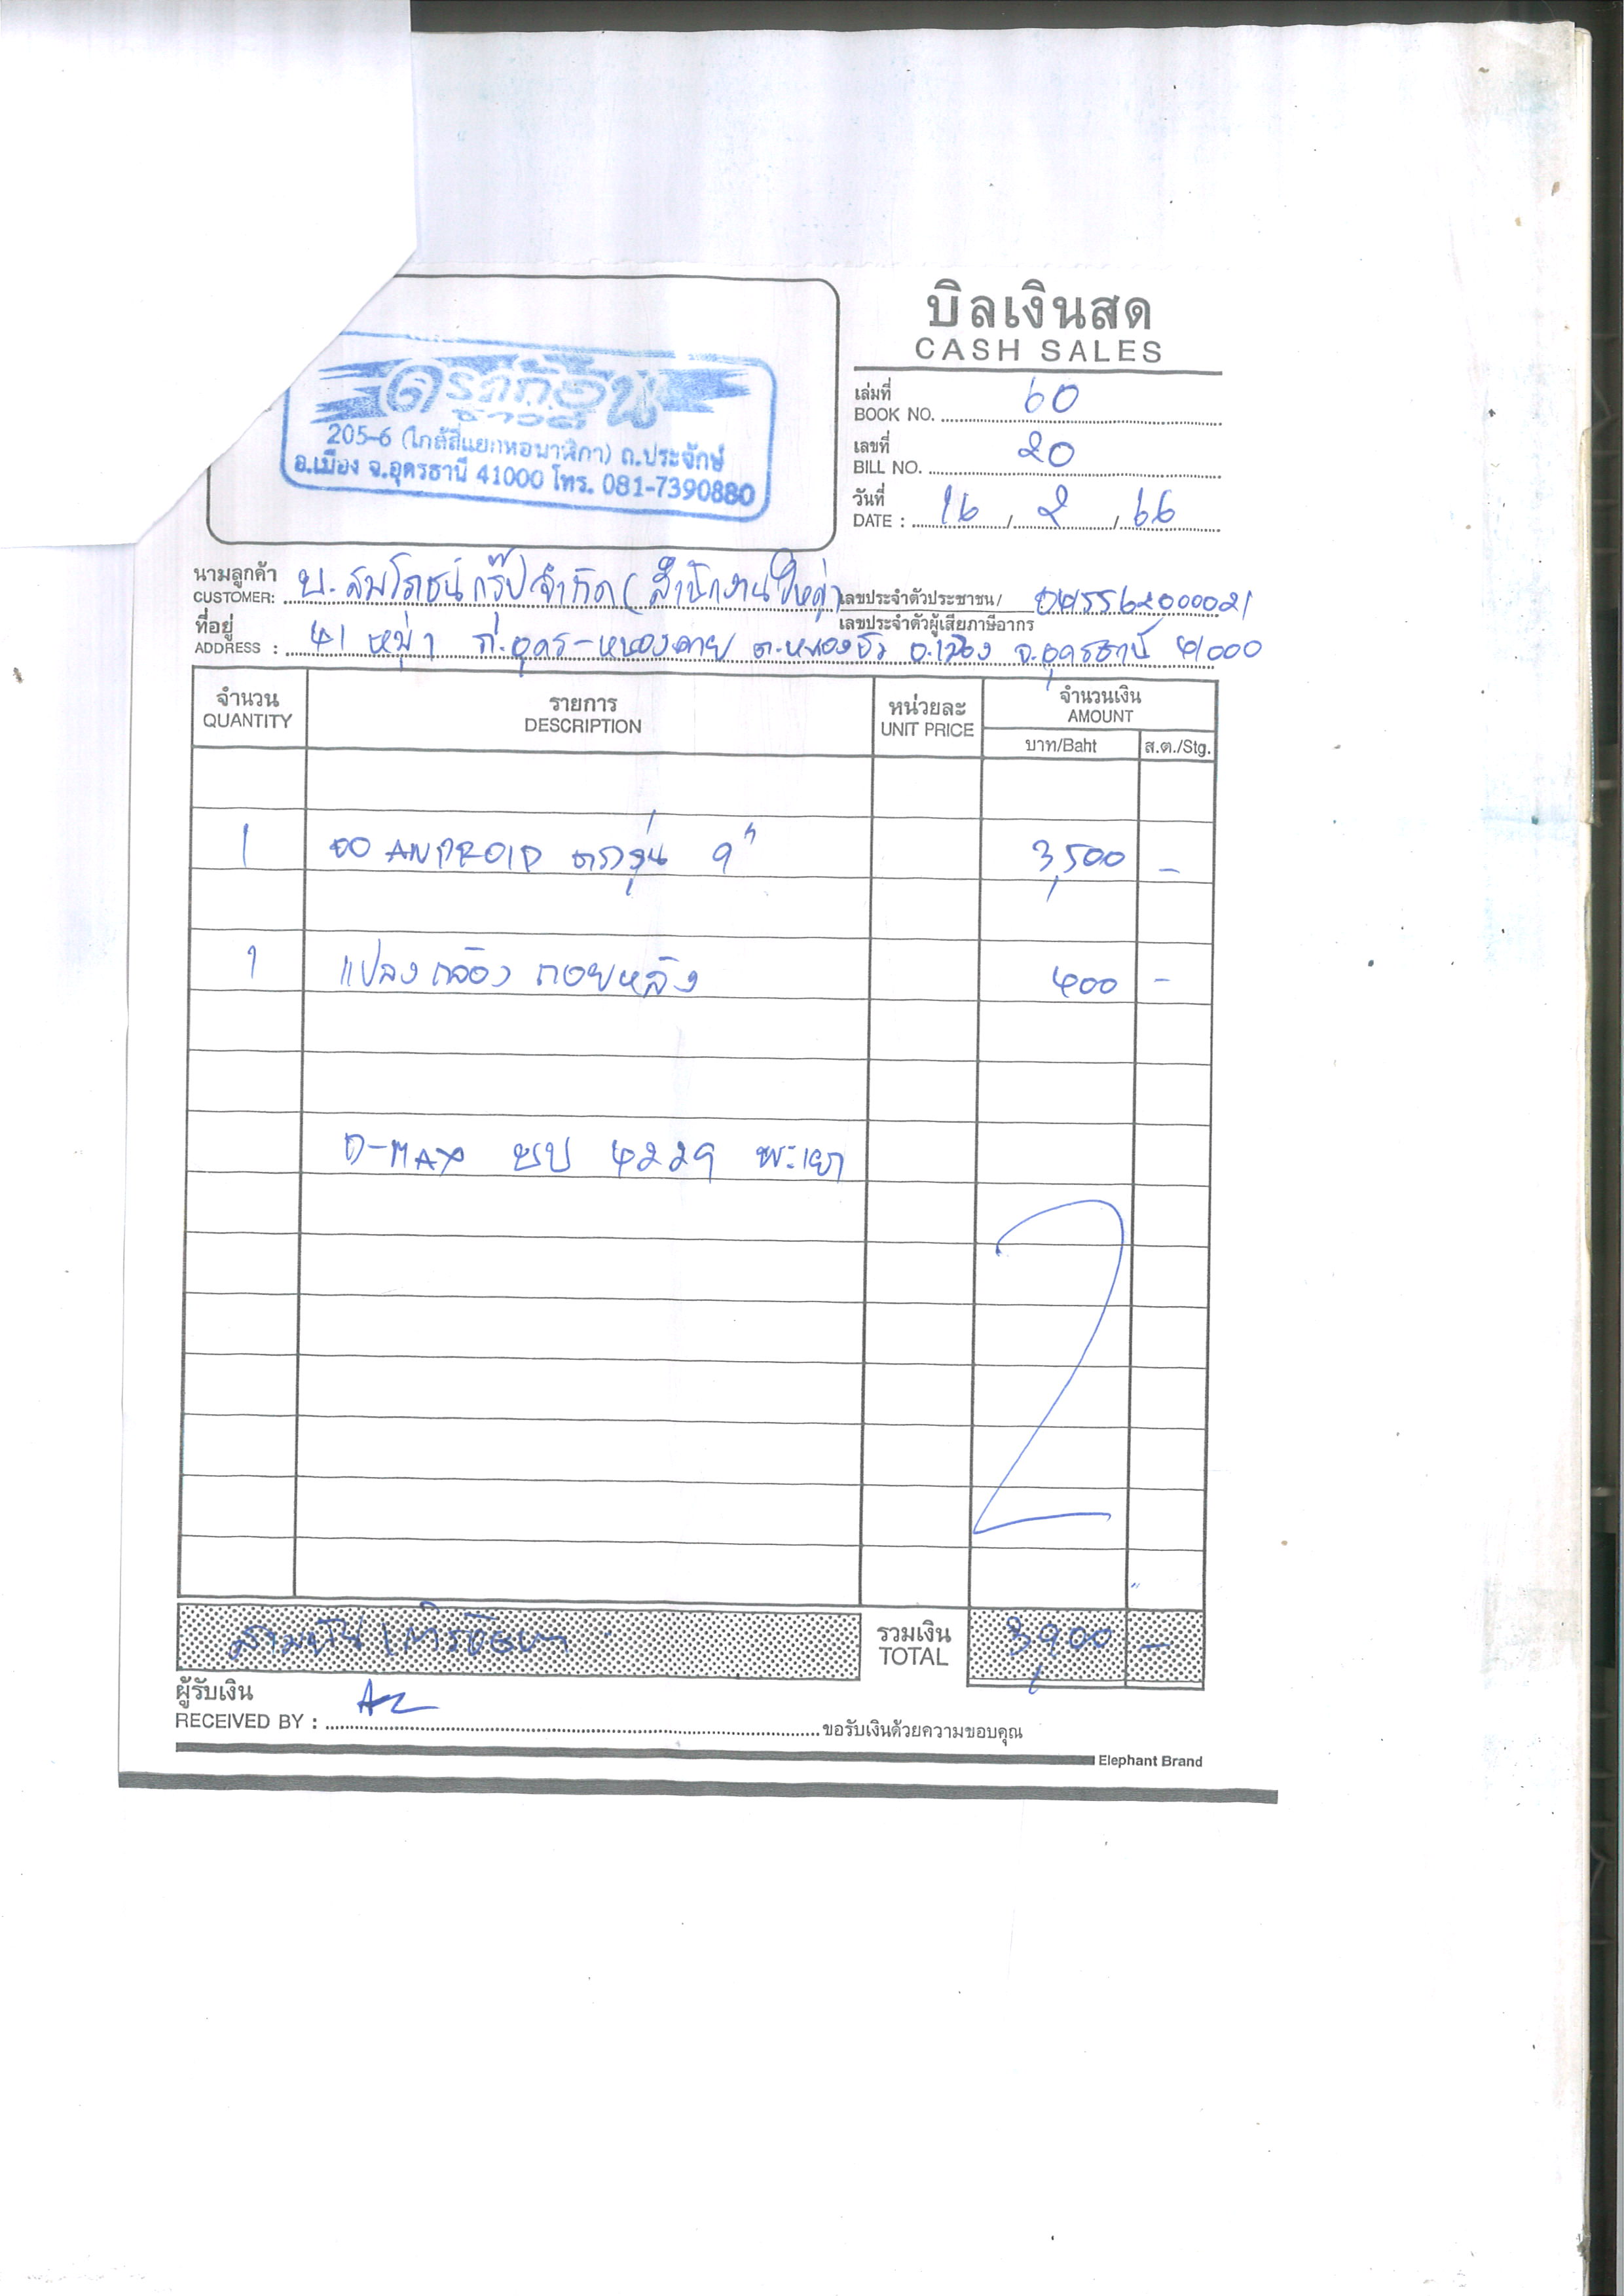 บิลเงินสด
CASH SALES
ดราก้อน
ซาวด์
205-6 (ใกล้สี่แยกหอนาฬิกา) ถ.ประจักษ์
อ.เมือง จ.อุดรธานี 41000 โทร. 081-7390880
เล่มที่
BOOK NO. 60
เลขที่
BILL NO. 20
วันที่
DATE : 16 / 2 / 66
นามลูกค้า
CUSTOMER: บ.สมโภชน์กรุ๊ปจำกัด (สำนักงานใหญ่)
เลขประจำตัวประชาชน/
เลขประจำตัวผู้เสียภาษีอากร
ที่อยู่
ADDRESS : 41 หมู่ 1 ถ.อุดร-หนองคาย ต.หนองบัว อ.เมือง จ.อุดรธานี 41000
จำนวน รายการ หน่วยละ จำนวนเงิน
QUANTITY DESCRIPTION UNIT PRICE AMOUNT
บาท/Baht ส.ต./Stg.
1 จอ ANDROID ตรงรุ่น 9" 3,500 -
1 แปลงกล้องถอยหลัง 400 -
D-MAX 4229 พะเยา
สามพันเก้าร้อยบาท รวมเงิน 3,900 -
TOTAL
ผู้รับเงิน
RECEIVED BY : ขอรับเงินด้วยความขอบคุณ
Elephant Brand